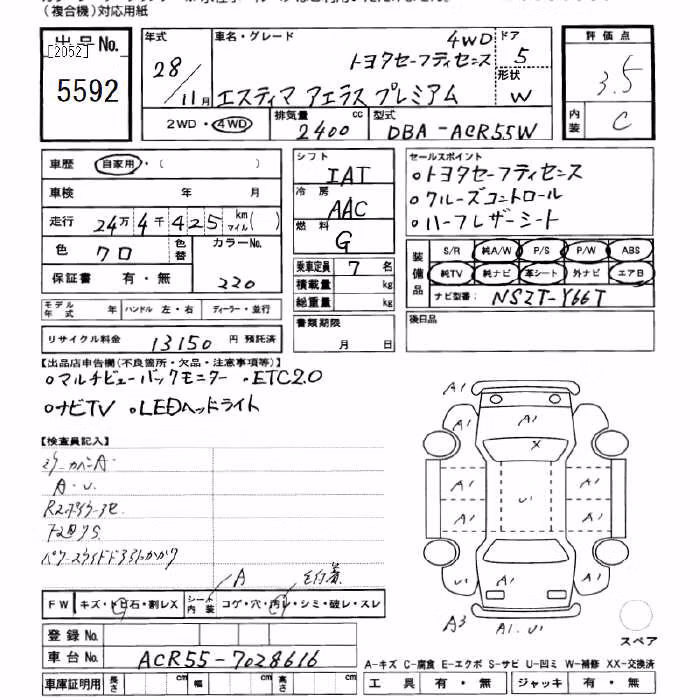 (複合機)対応用紙
出品No. [2052] 5592
年式 28/11月
車名・グレード 4WD
トヨタセーフティセンス
エスティマ アエラス プレミアム
ドア 5
形状 W
評価点 3.5
内装 C
2WD・4WD 排気量 2400 cc 型式 DBA-ACR55W
車歴 自家用・( )
車検 年 月
走行 24万4千425 km マイル( )
色 クロ 色替 カラーNo. 220
保証書 有・無
モデル年式 年 ハンドル 左・右 ディーラー・並行
リサイクル料金 13150 円 預託済
シフト IAT
冷房 AAC
燃料 G
乗車定員 7 名
積載量 kg
総重量 kg
書類期限
月 日
セールスポイント
○トヨタセーフティセンス
○クルーズコントロール
○ハーフレザーシート
装備品 S/R 純A/W P/S P/W ABS
純TV 純ナビ 革シート 外ナビ エアB
ナビ型番: NSZT-Y66T
後日品
【出品店申告欄(不良箇所・欠品・注意事項等)】
○マルチビューバックモニター ○ETC2.0
○ナビTV ○LEDヘッドライト
【検査員記入】
ミラーカバーA・
A・U・
FW キズ・トビ石・割レX シート内装 コゲ・穴・汚レ・シミ・破レ・スレ
A
登録No.
車台No. ACR55-7028616
車庫証明用 長さ cm 幅 cm 高さ cm
A1
A1 A1 A1
X
A1 A1
U1
A1 A1
U1 A1 A1
A3 A1.U1
スペア
A-キズ C-腐食 E-エクボ S-サビ U-凹ミ W-補修 XX-交換済
工具 有・無 ジャッキ 有・無